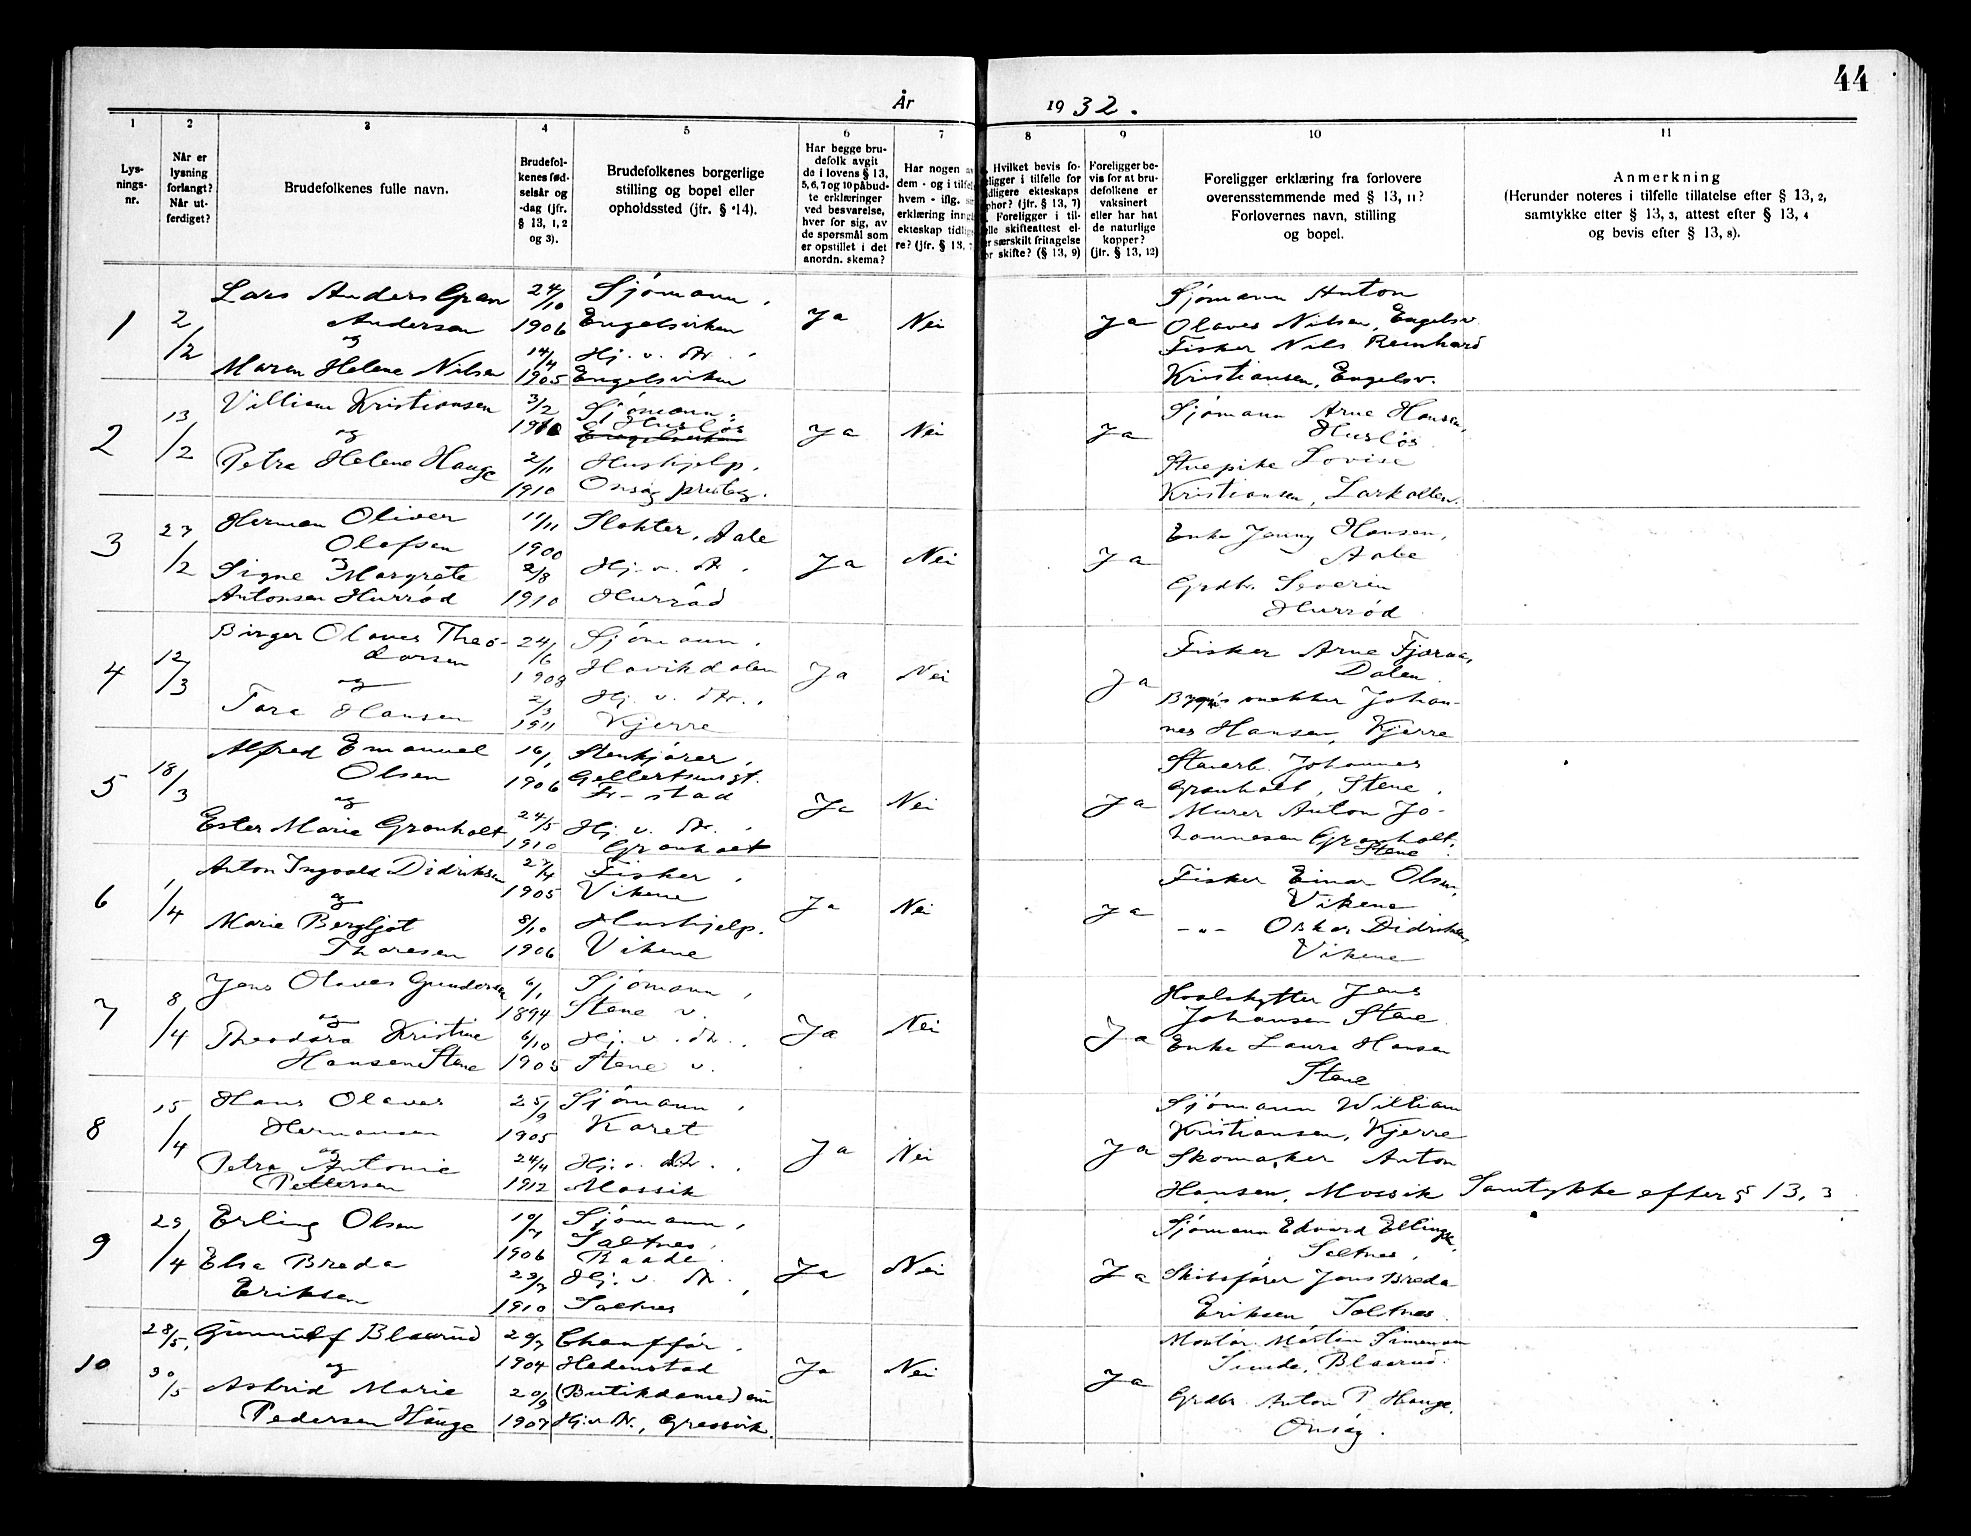 44
År 1932.
1 2 3 4 5 6 7 8 9 10 11
Lys-
nings-
nr.
Når er
lysning
forlangt?
Når ut-
ferdiget?
Brudefolkenes fulle navn.
Brudefol-
kenes fød-
selsår og
-dag (jfr.
§ 13, 1, 2
og 3).
Brudefolkenes borgerlige
stilling og bopel eller
opholdssted (jfr. § 14).
Har begge bru-
defolk avgit
de i lovens § 13,
5, 6, 7 og 10 påbud-
te erklæringer
ved besvarelse,
hver for sig, av
de spørsmål som
er opstillet i det
anordn. skema?
Har nogen
dem - og i tilfel
hvem - iflg.
erklæring inng
ekteskap tidlig
re? (jfr. § 13,
Hvilket bevis fo-
religger i tilfelle for
tidligere ekteskaps
ophør? (jfr. § 13, 7)
Foreligger i til-
elle skifteattest el-
er særskilt fritagelse
or skifte? (§ 13, 9)
Foreligger be-
vis for at bru-
defolkene er
vaksinert
eller har hat
de naturlige
kopper?
(jfr. § 13, 12)
Foreligger erklæring fra forlovere
overensstemmende med § 13, 11?
Forlovernes navn, stilling
og bopel.
Anmerkning
(Herunder noteres i tilfelle tillatelse efter § 13, 2,
samtykke efter § 13, 3, attest efter § 13, 4
og bevis efter § 13, 8).
1
2/2
Lars Anders Gran
Andersen
og
Maren Helene Nilsen
24/10
1906
14/4
1905
Sjömann,
Engelsviken
Hj. v. dtr.,
Engelsviken
Ja
Nei
Ja
Sjömann Anton
Olaves Nilsen, Engelsv.
Fisker Nils Reinhard
Kristiansen, Engelsv.
2
13/2
Villiam Kristiansen
og
Petra Helene Hauge
3/2
1910
2/11
1910
Sjömann,
Huslös
Engelsviken
Hushjelp.
Onsöy presteg.
Ja
Nei
Ja
Sjömann Arne Hansen,
Huslös
Stuepike Lovise
Kristiansen, Larkollen.
3
27/2
Herman Oliver
Olafsen
og
Signe Margrete
Antonsen Hurröd
11/11
1900
2/8
1910
Slakter, Aale
Hj. v. dtr.,
Hurröd
Ja
Nei
Ja
Enke Jenny Hansen,
Aale
Grdbr. Severin
Hurröd
4
12/3
Birger Olaves Theo-
dorsen
og
Tora Hansen
24/6
1908
2/3
1911
Sjömann,
Havikdalen
Hj. v. dtr.,
Kjerre
Ja
Nei
Ja
Fisker Arne Fjeraa,
Dalen
Johan-
nes Hansen, Kjerre
5
18/3
Alfred Emanuel
Olsen
og
Ester Marie Grønholt
16/1
1906
24/5
1910
Stenkjörer,
Gellertsensgt.
Fr-stad
Hj. v. dtr.,
Grønholt
Ja
Nei
Ja
Stenarb. Johannes
Grønholt, Stene,
Murer Anton Jo-
hannesen Grønholt,
Stene
6
1/4
Anton Ingvald Didriksen
og
Marie Bergljot
Thoresen
27/4
1905
8/10
1906
Fisker,
Vikene
Hushjelp.
Vikene
Ja
Nei
Ja
Fisker Einar Olsen,
Vikene
-"- Oskar Didriksen,
Vikene
7
8/4
Jens Olaves Gundersen
og
Theodora Kristine
Hansen Stene
6/1
1894
6/10
1905
Sjömann,
Stene v.
Hj. v. dtr.,
Stene v.
Ja
Nei
Ja
Hvalskytter Jens
Johansen Stene
Enke Laura Hansen
Stene
8
15/4
Hans Olaves
Hermansen
og
Petra Antonie
Pettersen
25/9
1905
24/4
1912
Sjömann,
Karet
Hj. v. dtr.,
Mossik
Ja
Nei
Ja
Sjömann William
Kristiansen, Kjerre
Skomaker Anton
Hansen, Mossik
Samtykke efter § 13, 3
9
29/4
Erling Olsen
Elsa Breda
Eriksen
10/7
1906
23/7
1910
Sjömann,
Saltnes,
Raade.
Hj. v. dtr.,
Saltnes
Ja
Nei
Ja
Sjömann Edvard
Saltnes,
Skibsförer Jens Breda
Eriksen Saltnes
10
28/5,
30/5
Gunnulf Blaarud
og
Astrid Marie
Pedersen Hauge
20/7
1904
20/9
1907
Chafför,
Hedenstad
(Butikdame)
Hj. v. dtr., Gressvik.
Ja
Nei
Ja
Montör Martin Simensen
Blaarud.
Grdbr. Anton P. Hauge,
Onsöy.